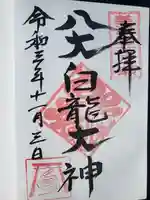 奉拝
八大白龍大神
令和三年十一月三日